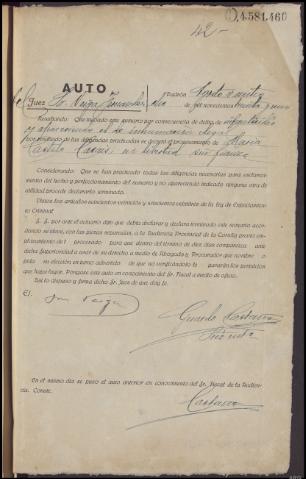 1.581.460
42 -
AUTO
Juez Sr. Veiga Fernandez
Resultando: Que incoado este sumario por consecuencia de delito de infanticidio
y apareciendo el de inhumación ilegal
procesado de las diligencias practicadas se acordó el procesamiento de María
en libertad sin fianza
Considerando: Que se han practicado todas las diligencias necesarias para esclareci-
miento del hecho y perfeccionamiento del sumario y no apareciendo indicada ninguna otra de
utilidad procede declararlo terminado.
Vistos los artículos seiscientos veintidós y seiscientos veintitrés de la ley de Enjuiciamien-
to Criminal
S. S. por ante el actuario dijo que debía declarar y declara terminado este sumario acordan-
do se eleve, con las piezas separadas, a la Audiencia Provincial de La Coruña previo em-
plazamiento del procesado para que dentro del término de diez días comparezca ante
dicha Superioridad a usar de su derecho a medio de Abogado y Procurador que nombre o
pida su elección en turno advertido de que no verificándolo le pararán los perjuicios
que haya lugar. Póngase este auto en conocimiento del Sr. Fiscal a medio de oficio.
Así lo dispuso y firma dicho Sr. Juez de que doy fe.
El
En el mismo día se puso el auto anterior en conocimiento del Sr. Fiscal de la Audien-
cia. Conste.